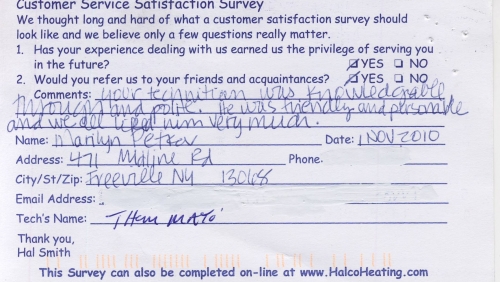 Customer Service Satisfaction Survey
We thought long and hard of what a customer satisfaction survey should
look like and we believe only a few questions really matter.
1. Has your experience dealing with us earned us the privilege of serving you
in the future? YES NO
2. Would you refer us to your friends and acquaintances? YES NO
Comments: your technition was knowledgable
through and polite. He was friendly and personable
and we all liked him very much.
Name: Marilyn Date: 1 NOV 2010
Address: 471 Rd Phone.
City/St/Zip: Freeville NY 13068
Email Address:
Tech's Name:
Thank you,
Hal Smith
This Survey can also be completed on-line at www.HalcoHeating.com